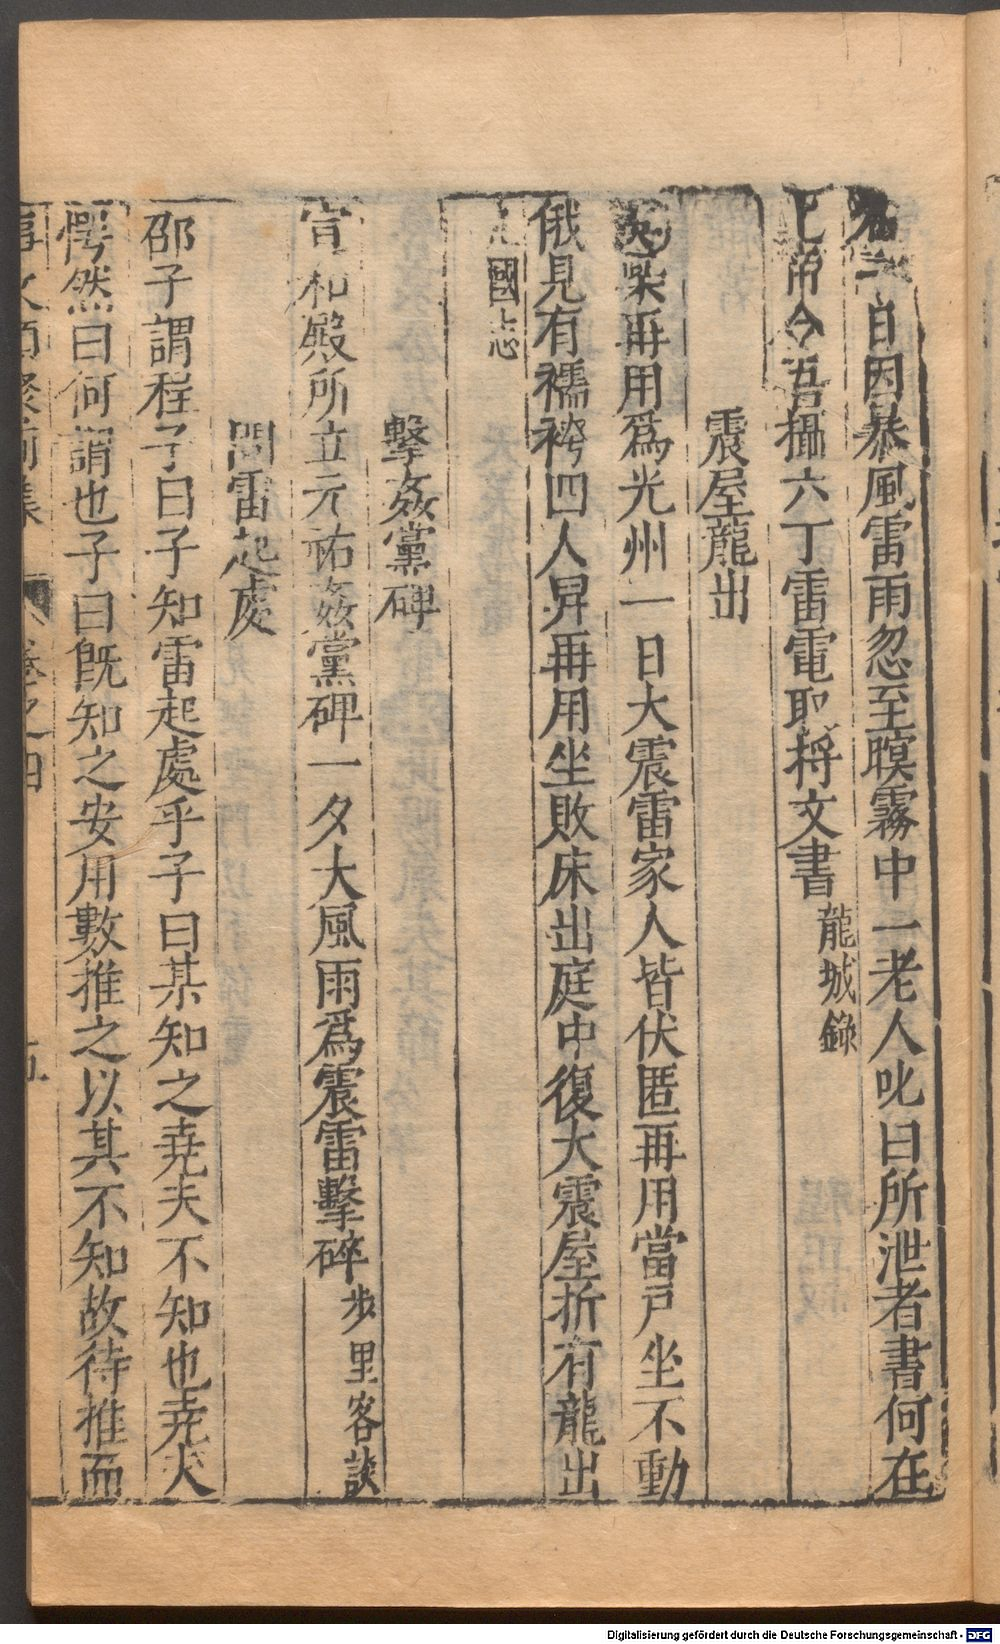 一日因暴風雷雨忽至暝霧中一老人叱曰所泄者書何在
上帝令吾攝六丁雷電取将文書龍城錄
震屋龍出
柴再用爲光州一日大震雷家人皆伏匿再用當戸坐不動
俄見有襦袴四人舁再用坐敗床出庭中復大震屋折有龍出
國志
擊姦黨碑
宣和殿所立元祐姦黨碑一夕大風雨爲震雷擊碎步里客談
問雷起處
邵子謂程子曰子知雷起處乎子曰某知之尭夫不知也尭夫
愕然曰何謂也子曰旣知之安用數推之以其不知故待推而
事文類聚前集 卷之四 五
Digitalisierung gefördert durch die Deutsche Forschungsgemeinschaft - DFG